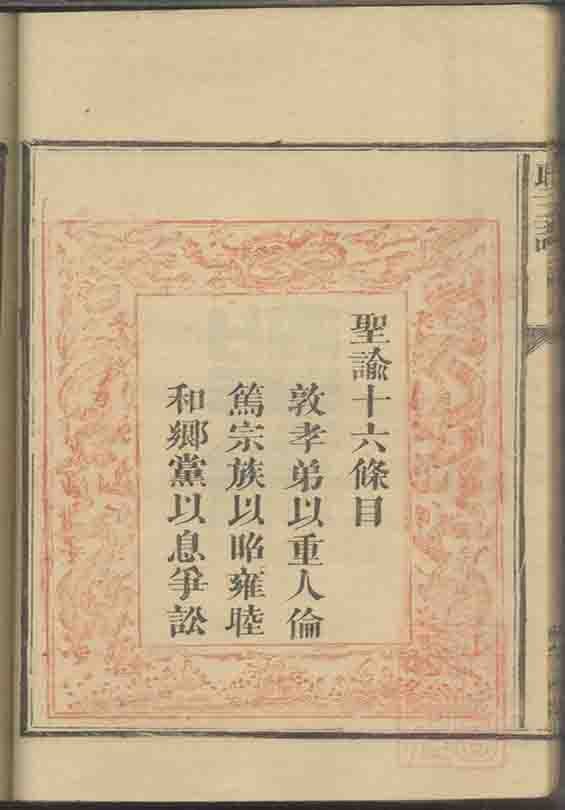 聖諭十六條目
敦孝弟以重人倫
篤宗族以昭雍睦
和鄉黨以息爭訟